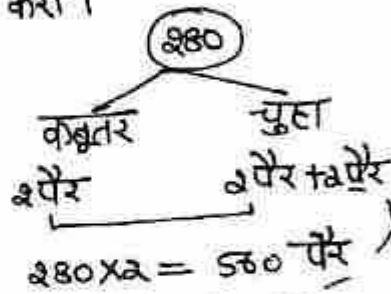 करो ।
२80
कबूतर चुहा
२पैर २पैर +२पैर
२80×२ = 560 पैर